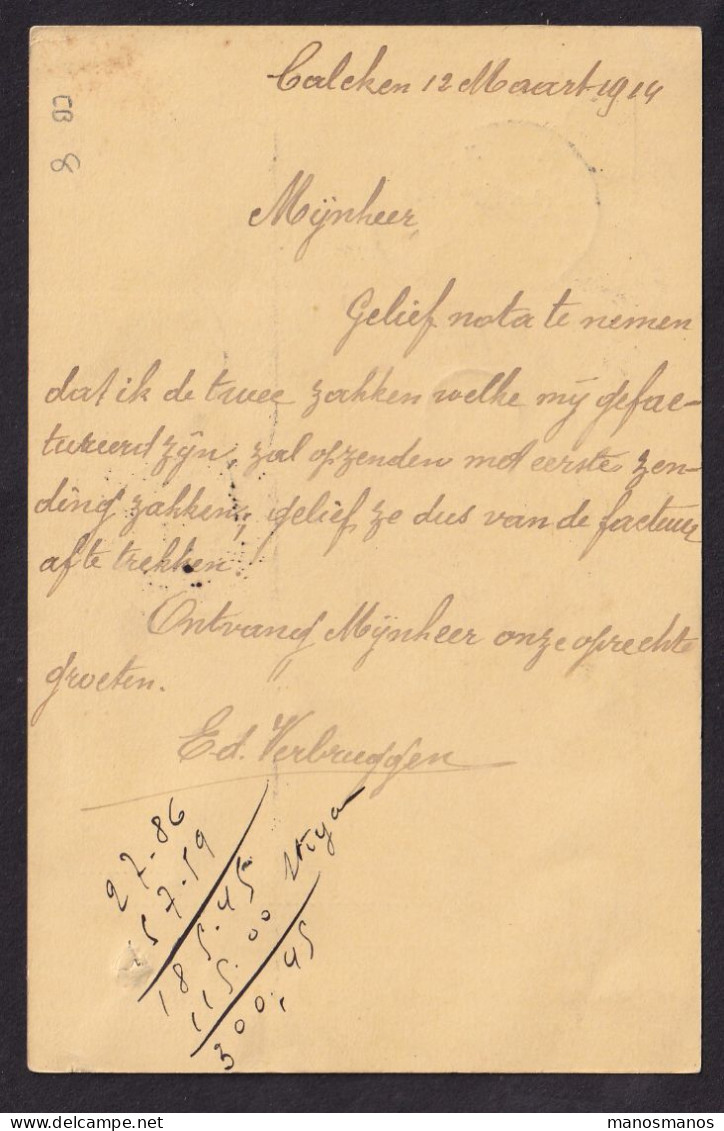 Calcken 12 Maart 1914
Mijnheer,
Gelief nota te nemen
dat ik de twee zakken welke mij gefac-
tureerd zijn, zal opzenden met eerste zen-
ding zakken, gelief ze dus van de factuur
af te trekken.
Ontvang Mijnheer onze oprechte
groeten.
Ed. Verbruggen
27.86
157.59
185.45
115.00
300.45
CB
8
manosmanos